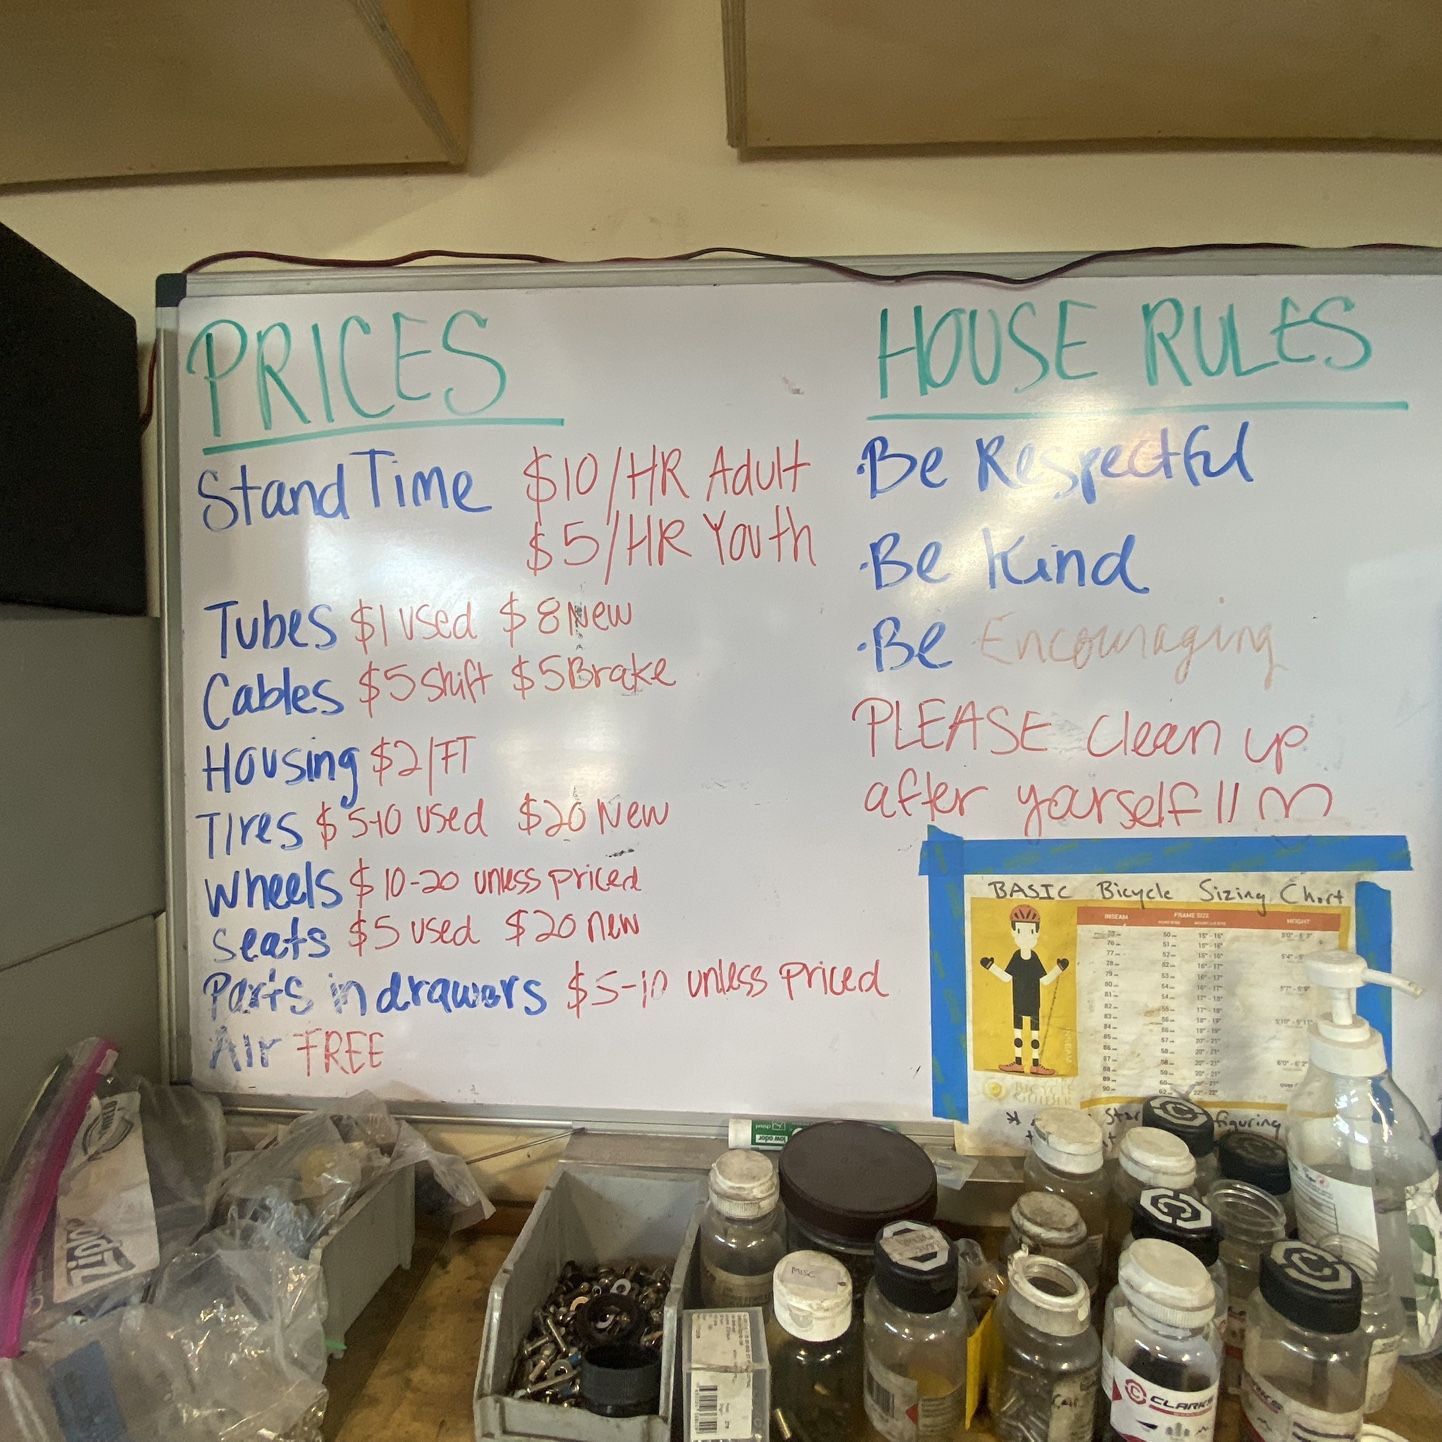 PRICES
Stand Time $10/HR Adult
$5/HR Youth
Tubes $1 used $8 New
Cables $5 shift $5 Brake
Housing $2/FT
Tires $5-10 used $20 New
Wheels $10-20 unless priced
Seats $5 used $20 new
Parts in drawers $5-10 unless priced
Air FREE
HOUSE RULES
·Be Respectful
·Be Kind
·Be Encouraging
PLEASE clean up
after yourself!!
BASIC Bicycle Sizing Chart
INSEAM FRAME SIZE HEIGHT
BICYCLE
GUIDER
Ziploc
low odor
MISC
CLARKS